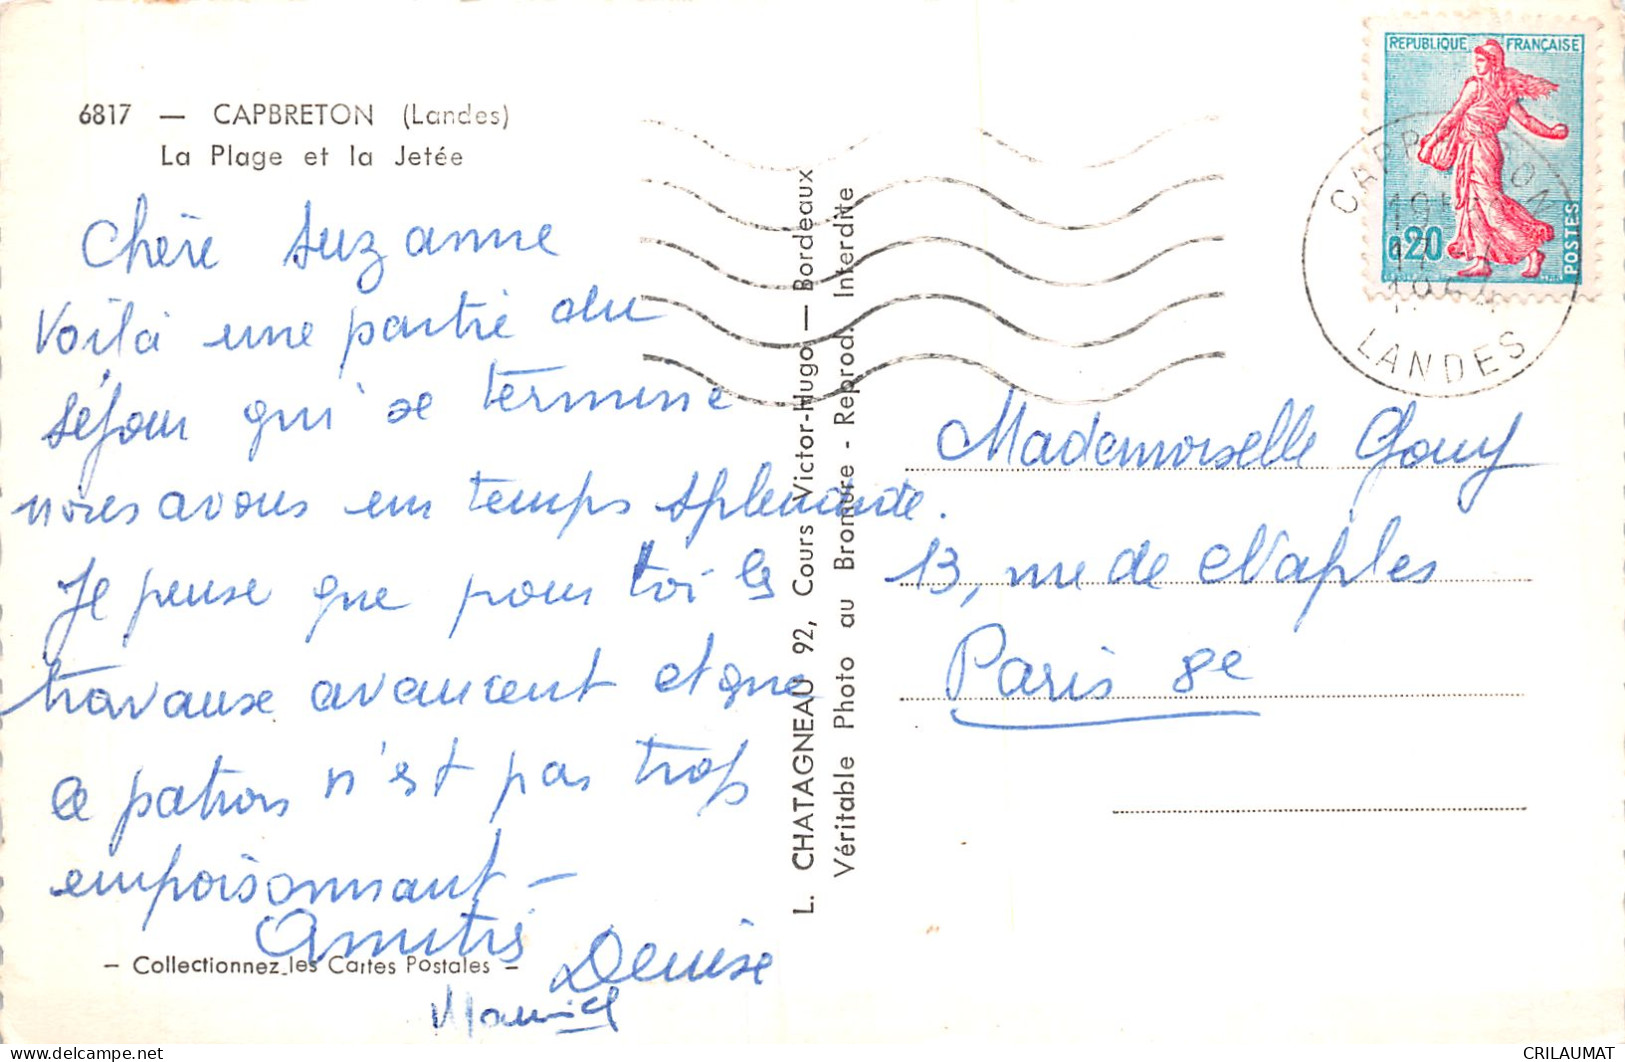 6817 — CAPBRETON (Landes)
La Plage et la Jetée
Chère Suzanne
Voilà une partie du
séjour qui se termine
nous avons eu temps splendide.
Je pense que pour toi les
travaux avancent et que
le patron n'est pas trop
empoisonnant —
Amitiés Denise
— Collectionnez les Cartes Postales —
L. CHATAGNEAU 92, Cours Victor-Hugo — Bordeaux
Véritable Photo au Bromure - Reprod. Interdite
REPUBLIQUE FRANÇAISE
0,20
POSTES
CAPBRETON
1964
LANDES
Mademoiselle Gouy
13, rue de Naples
Paris 8e
CRILAUMAT